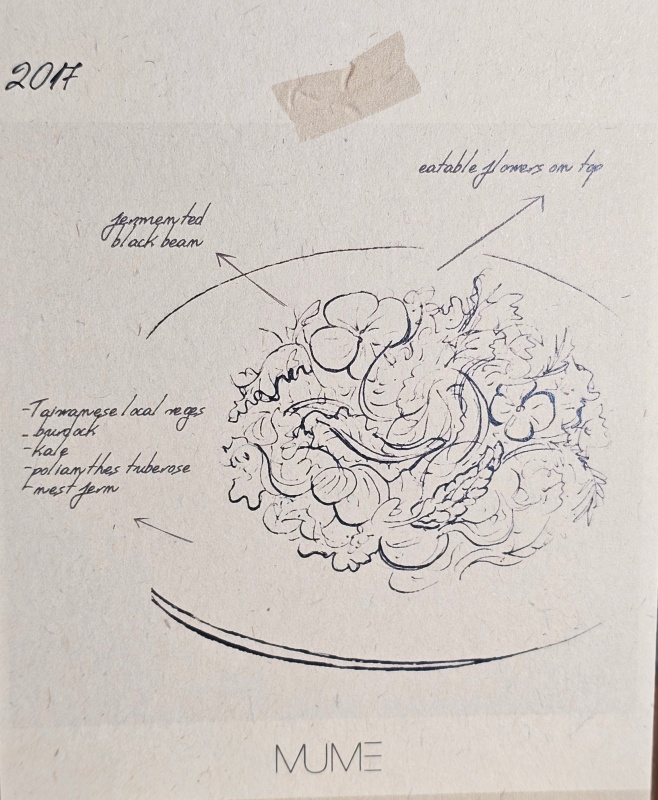 2017
eatable flowers on top
fermented
black bean
-Taiwanese local veges
-burdock
-kale
-polianthes tuberose
-nest fern
MUME